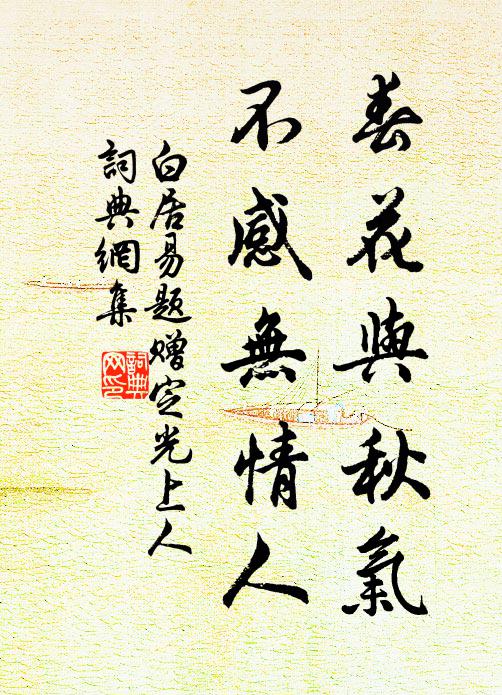 春花與秋氣
不感無情人
白居易題贈定光上人
詞典網集
詞典网印